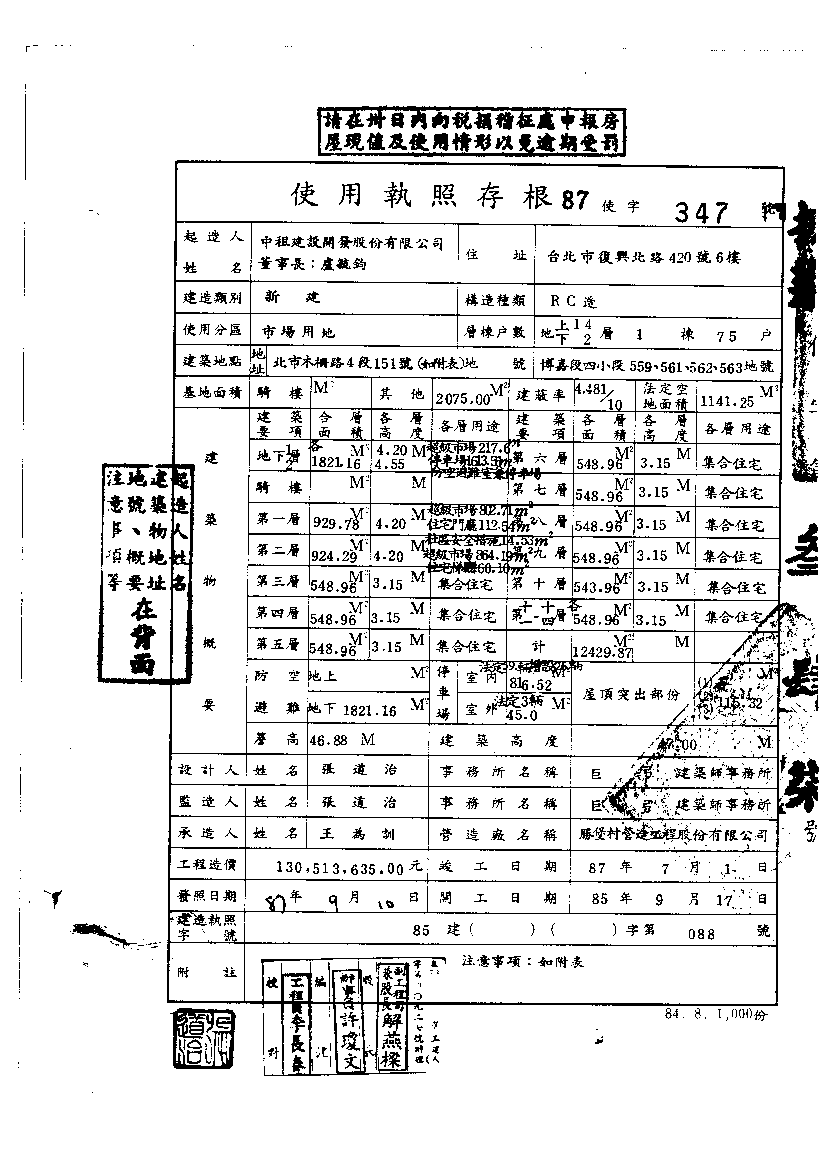 請在卅日內向稅捐稽征處申報房
屋現值及使用情形以免逾期受罰
使用執照存根 87 使字 347 號
起造人姓名 中租建設開發股份有限公司 董事長：盧毓鈞 住址 台北市復興北路420號6樓
建造類別 新建 構造種類 RC造
使用分區 市場用地 層棟戶數 地上14下2層 1棟 75戶
建築地點 地址 北市木柵路4段151號(如附表)地號 博嘉段四小段559、561、562、563地號
基地面積 騎樓 M² 其他 2075.00 M² 建蔽率 4.481/10 法定空地面積 1141.25 M²
建築概要
建築要項 各層面積 各層高度 各層用途 建築要項 各層面積 各層高度 各層用途
地下1 2層 各1821.16 M² 4.20 4.55 M 超級市場217.6 停車場 防空避難室兼停車場 第六層 548.96 M² 3.15 M 集合住宅
騎樓 M² M 第七層 548.96 M² 3.15 M 集合住宅
第一層 929.78 M² 4.20 M 超級市場802.71m² 住宅門廳112.54m² 社區安全措施14.53m² 第八層 548.96 M² 3.15 M 集合住宅
第二層 924.29 M² 4.20 M 超級市場864.19m² 60.10m² 第九層 548.96 M² 3.15 M 集合住宅
第三層 548.96 M² 3.15 M 集合住宅 第十層 543.96 M² 3.15 M 集合住宅
第四層 548.96 M² 3.15 M 集合住宅 第十一-十四層 各548.96 M² 3.15 M 集合住宅
第五層 548.96 M² 3.15 M 集合住宅 計 12429.87 M² M
防空避難 地上 M² 地下1821.16 M² 停車場 室內 816.52 M² 室外 法定3輛 45.0 M² 屋頂突出部份 (1)(2)(3) 116.32 M²
簷高 46.88 M 建築高度 M
設計人 姓名 張道治 事務所名稱 建築師事務所
監造人 姓名 張道治 事務所名稱 建築師事務所
承造人 姓名 王為訓 營造廠名稱 營造工程股份有限公司
工程造價 130,513,635.00元 竣工日期 87年7月1日
發照日期 87年9月10日 開工日期 85年9月17日
建造執照字號 85建( )( )字第 088 號
附註 注意事項：如附表
84. 8. 1,000份
起造人姓名
建築物地址
地號、概要
注意事項等
在背面
校對 工程員李長
繕 許瓊文
股長 副工程司 解燕樑
張道治